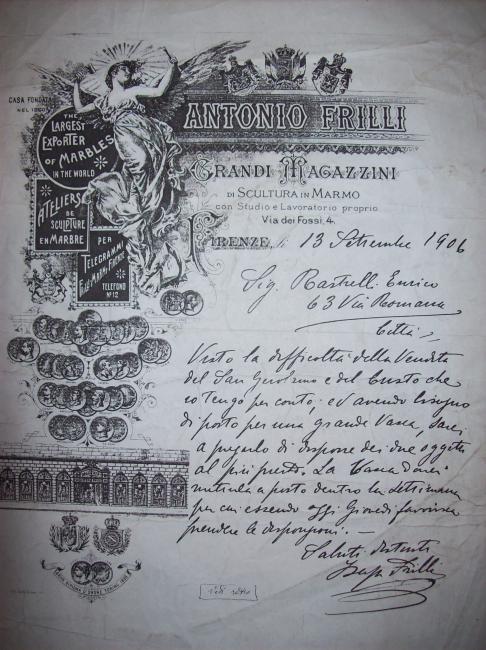 CASA FONDATA
NEL 1860
THE
LARGEST
EXPORTER
OF MARBLES
IN THE WORLD
ATELIERS
DE
SCULPTURE
EN MARBRE
PER
TELEGRAMMI
TELEFONO
Nº 12
ANTONIO FRILLI
GRANDI MAGAZZINI
DI SCULTURA IN MARMO
con Studio e Lavoratorio proprio
Via dei Fossi, 4.
FIRENZE, li 13 Settembre 1906
Sig. Rastrelli Enrico
63 Via Romana
Città
Visto la difficoltà della Vendita
del San e del busto che
io tengo per conto; ed avendo bisogno
di posto per una grande Vasca, sarei
a pregarlo di disporre dei due oggetti
al più presto. La Vasca dovrei
metterla a posto dentro la settimana
per cui essendo oggi Giovedì favorirà
prendere le disposizioni. —
Saluti distinti
Frilli
vedi retro